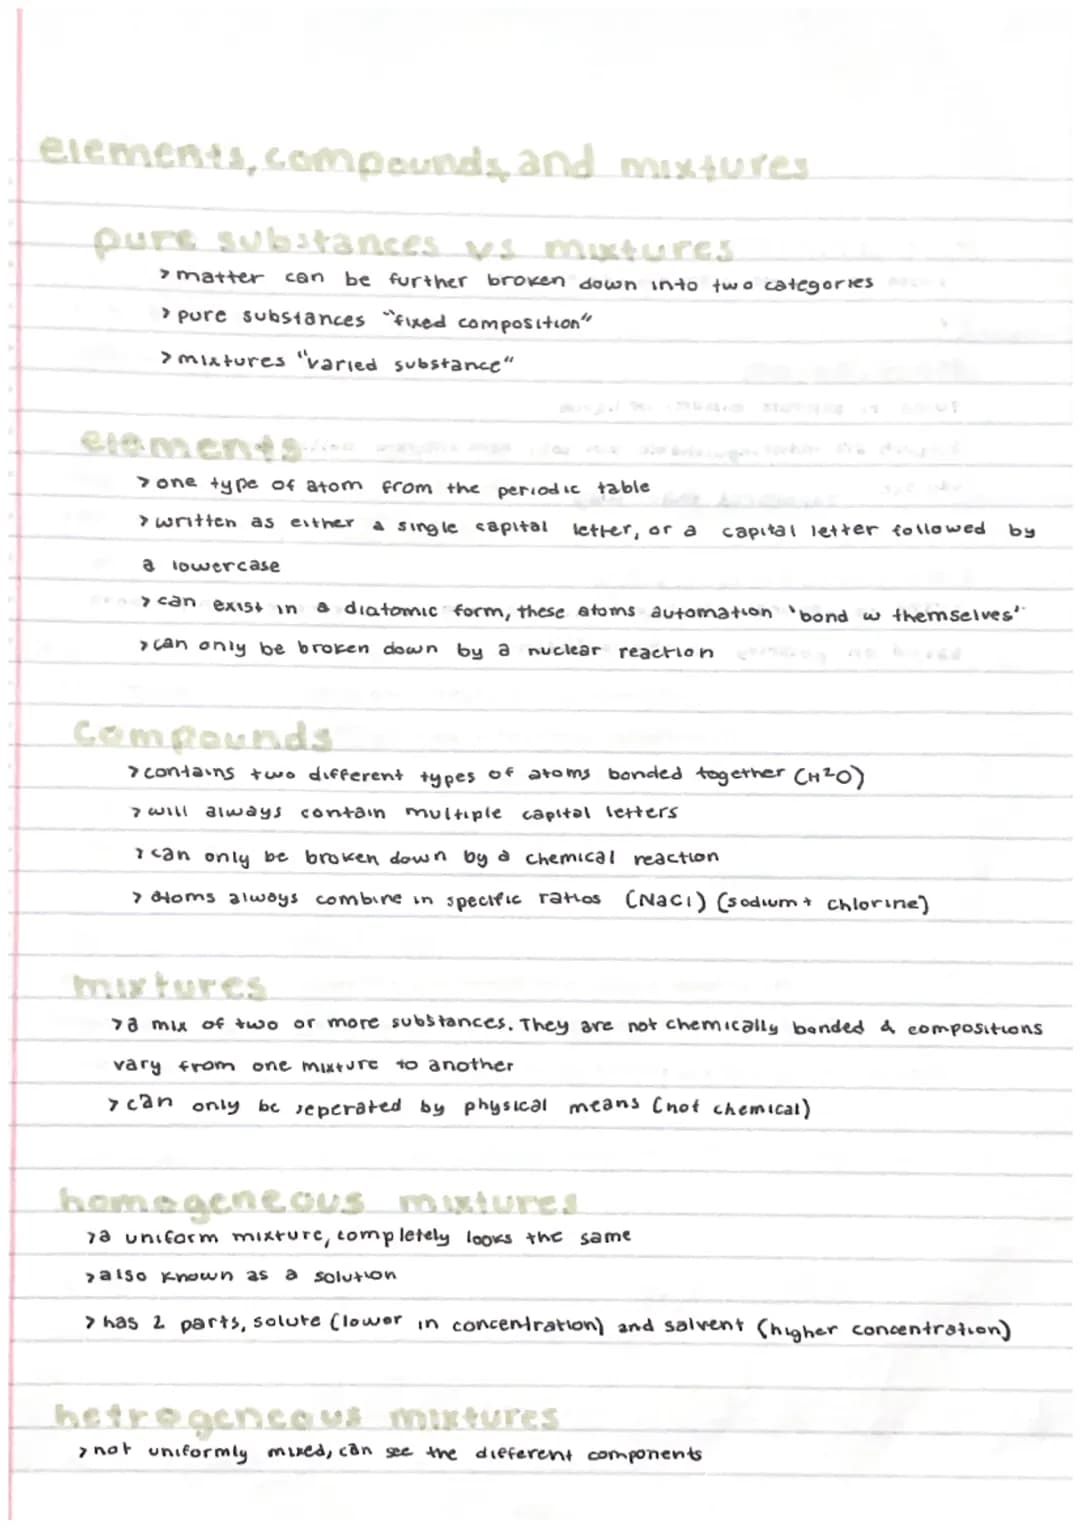 elements, compounds, and mixtures
pure substances vs mixtures
> matter can be further broken down into two categories
> pure substances "fixed composition"
> mixtures "varied substance"
elements
> one type of atom from the periodic table
> written as either a single capital letter, or a capital letter followed by
a lowercase
> can exist in a diatomic form, these atoms automation 'bond w themselves'
> can only be broken down by a nuclear reaction
compounds
> contains two different types of atoms bonded together (H²O)
> will always contain multiple capital letters
> can only be broken down by a chemical reaction
> atoms always combine in specific ratios (NaCl) (sodium + chlorine)
mixtures
> a mix of two or more substances. They are not chemically bonded & compositions
vary from one mixture to another
> can only be seperated by physical means (not chemical)
homogeneous mixtures
> a uniform mixture, completely looks the same
> also known as a solution
> has 2 parts, solute (lower in concentration) and solvent (higher concentration)
hetrogeneous mixtures
> not uniformly mixed, can see the different components